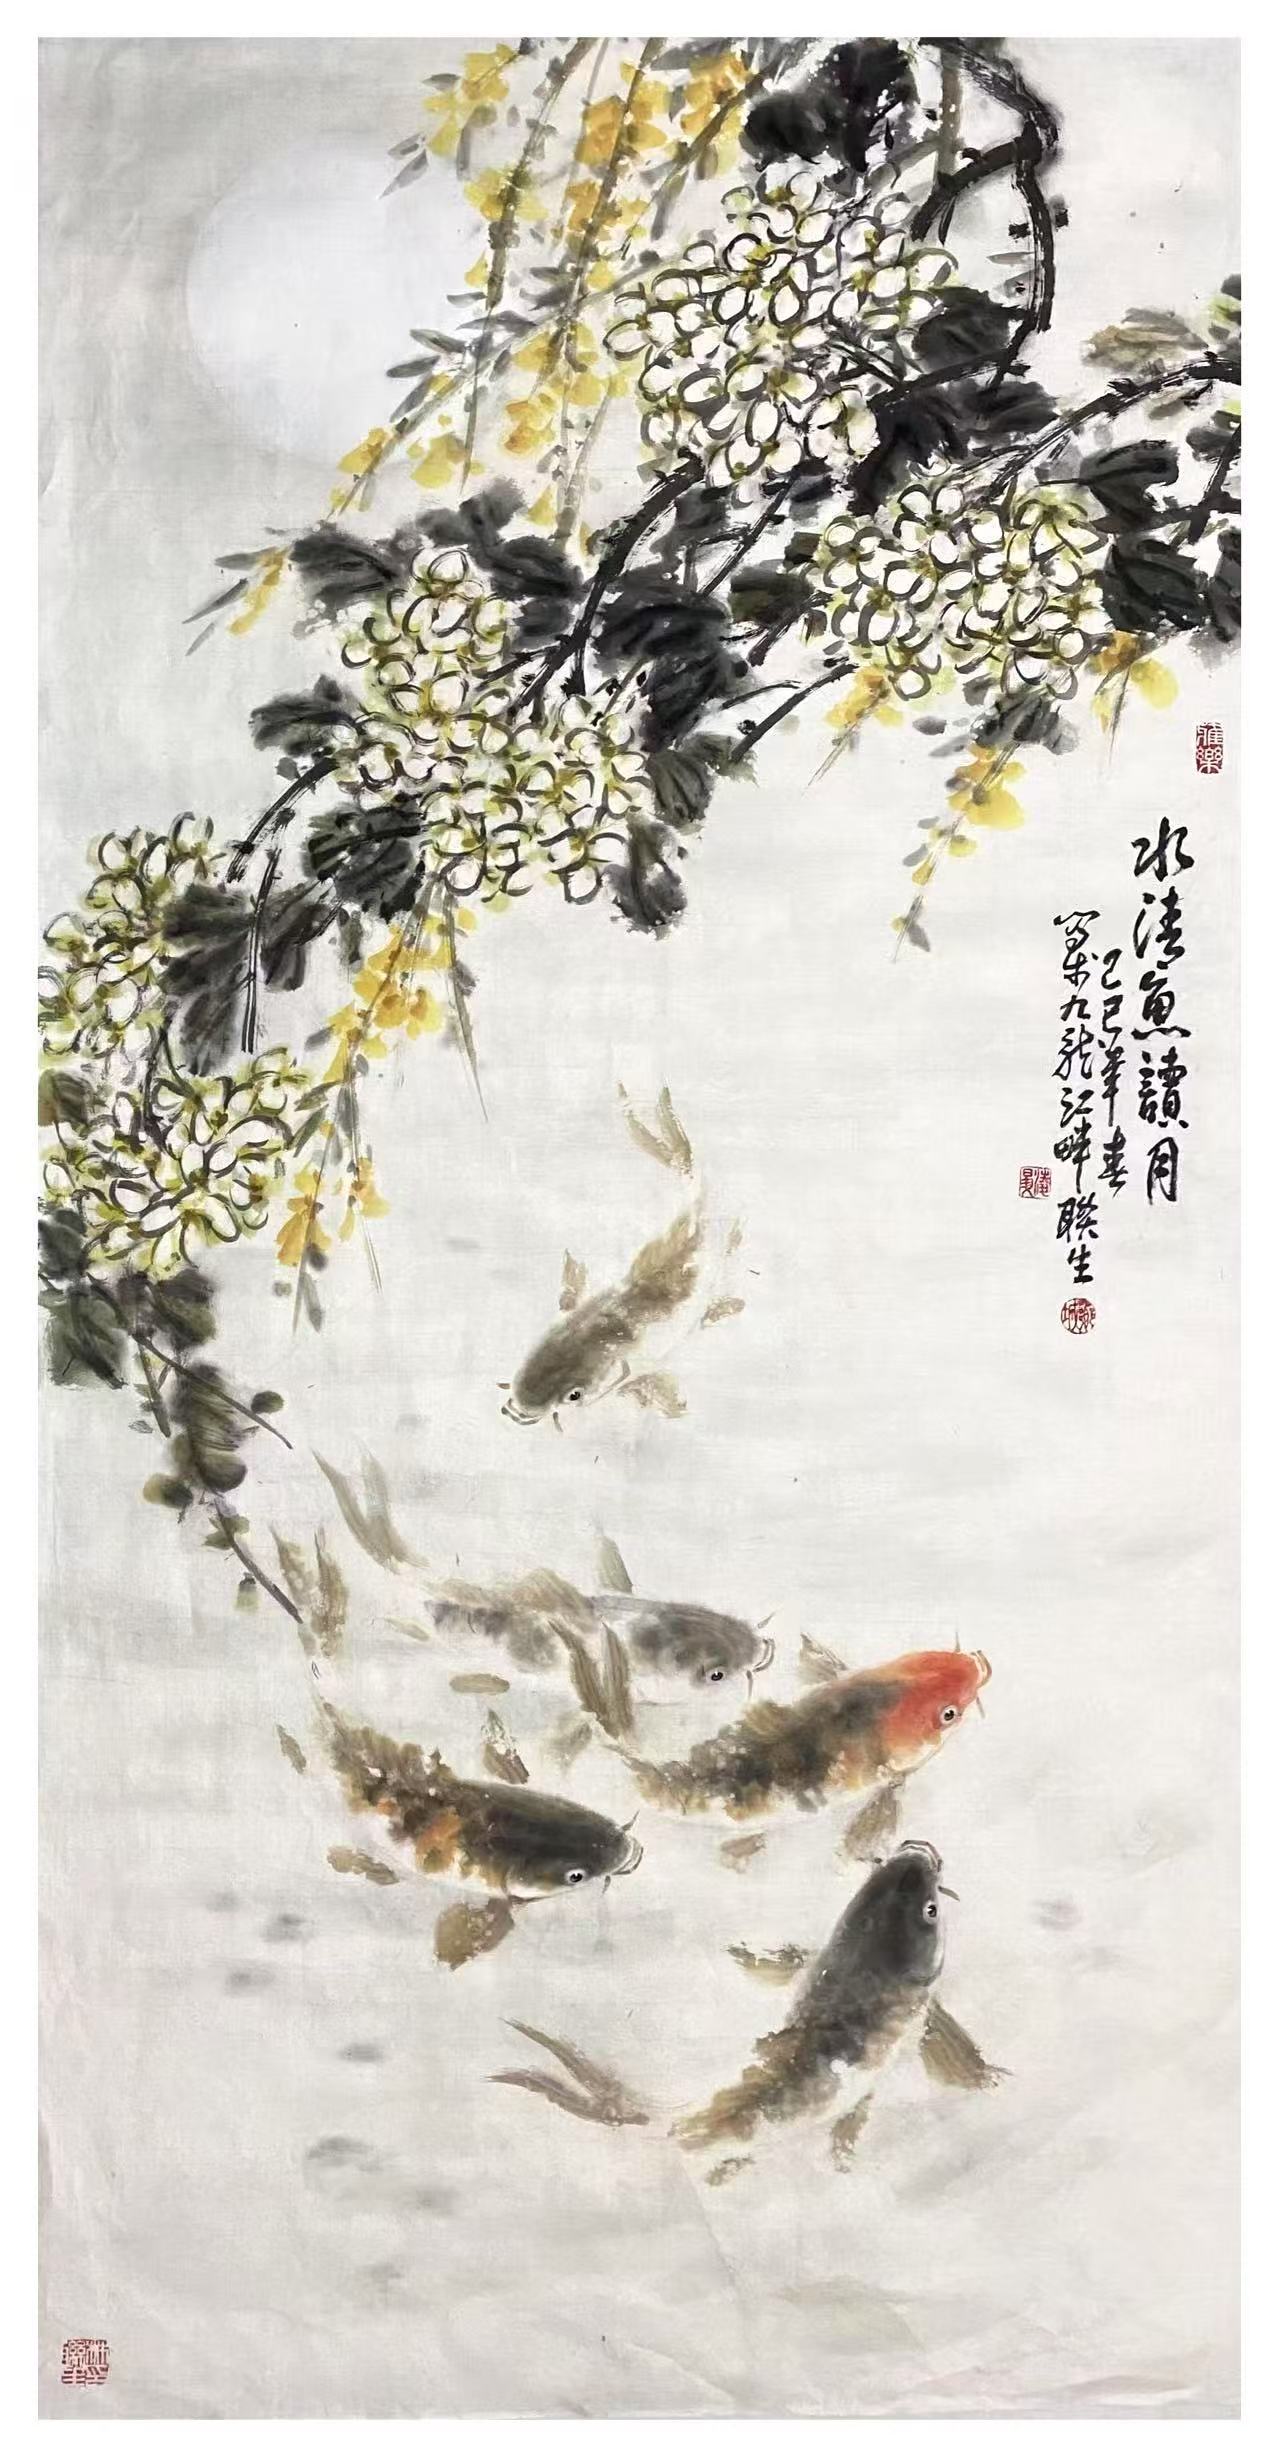 水清魚讀月
乙巳年春
寫於九龍江畔聯生
雅樂